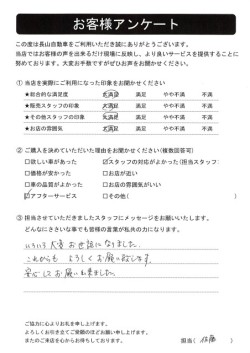 お客様アンケート
この度は長山自動車をご利用いただき誠にありがとうございます。
当店ではお客様の声を出来るだけ現場に反映し、より良いサービスを提供することに
努めております。大変お手数ですがぜひお声をお聞かせください。
① 当店を実際にご利用になった印象をお聞かせください
★総合的な満足度 大満足 満足 やや不満 不満
★販売スタッフの印象 大満足 満足 やや不満 不満
★その他スタッフの印象 大満足 満足 やや不満 不満
★お店の雰囲気 大満足 満足 やや不満 不満
② ご購入を決めていただいた理由をお聞かせください(複数回答可)
□欲しい車があった ☑スタッフの対応がよかった(担当スタッフ:
□価格が安かった □お店が近い
□車の品質がよかった □お店の雰囲気がいい
☑アフターサービス □その他( )
③ 担当させていただきましたスタッフにメッセージをお願いいたします。
どんなにささいな事でも皆様の言葉が私共の力になります。
いろいろ大変お世話になりました。
これからも よろしくお願い致します。
安心してお願い出来ました。
ご協力に心よりお礼を申し上げます。
よろしくお引き立てご愛顧のほどお願い申し上げます。
またのご来店を心からお待ちしております。
担当( 佐藤 )